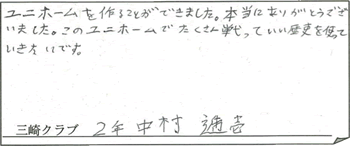 ユニホームを作ることができました。本当にありがとうござ
いました。このユニホームでたくさん戦っていい歴史を作って
いきたいです。
三崎クラブ 2年 中村